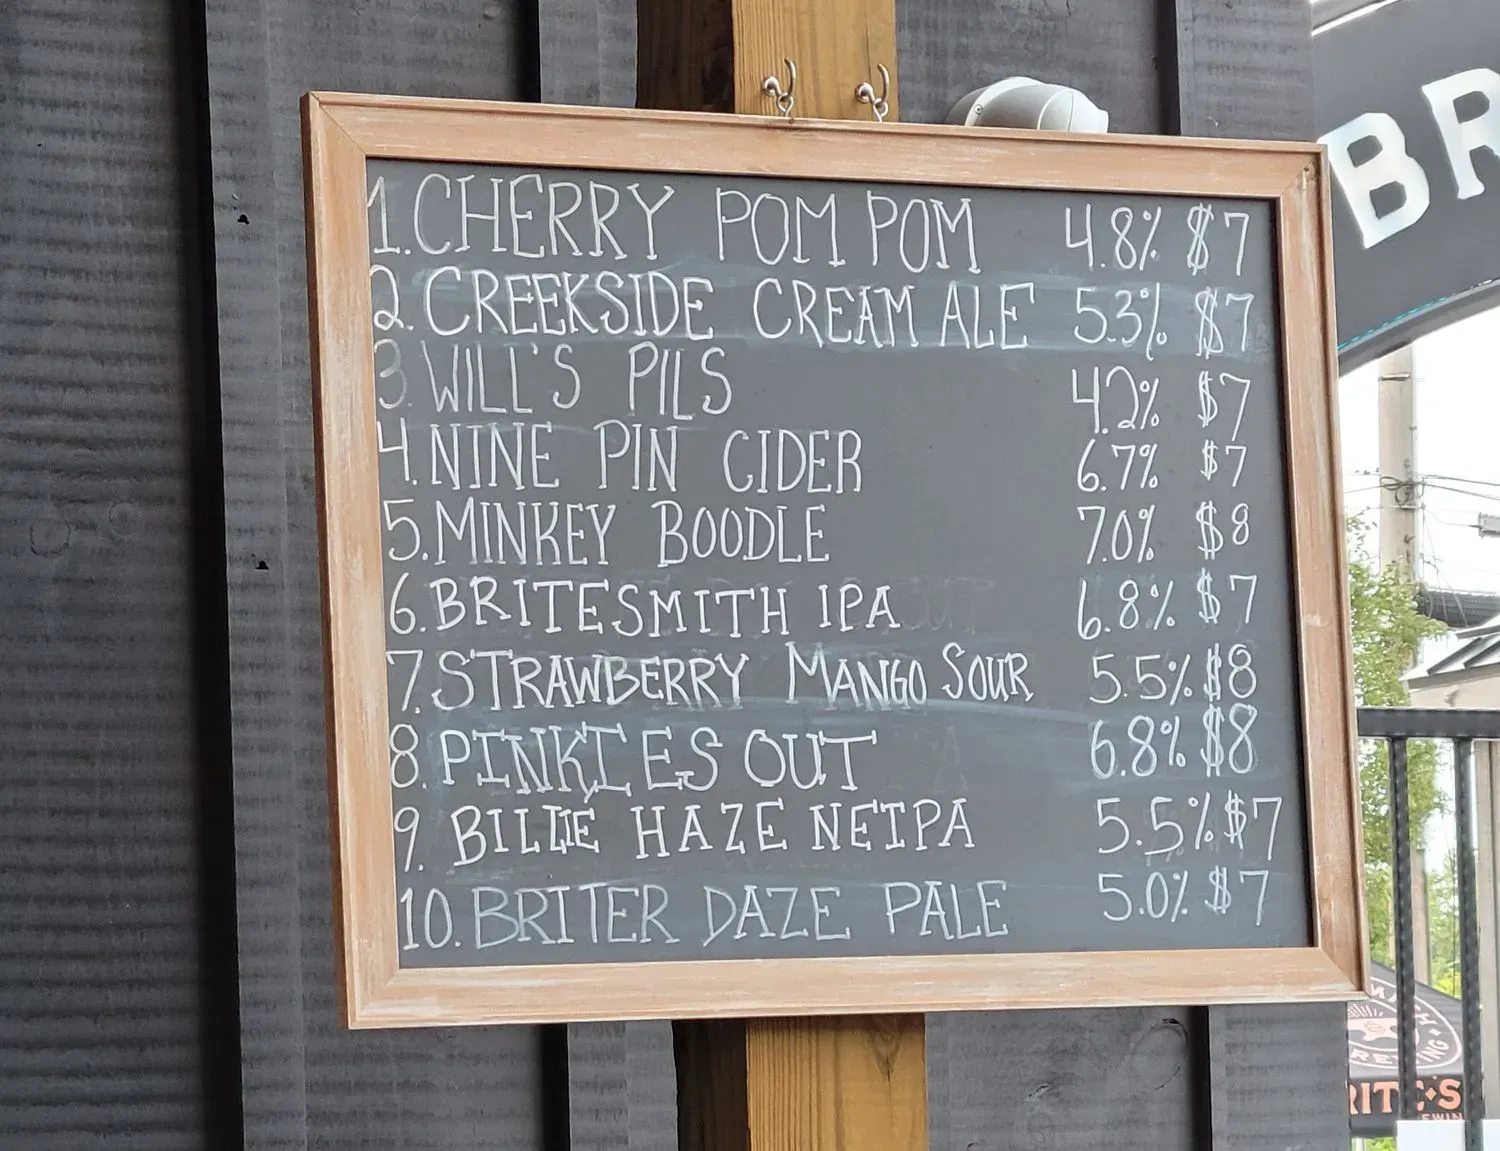 1. CHERRY POM POM 4.8% $7
2. CREEKSIDE CREAM ALE 5.3% $7
3. WILL'S PILS 4.2% $7
4. NINE PIN CIDER 6.7% $7
5. MINKEY BOODLE 7.0% $8
6. BRITESMITH IPA 6.8% $7
7. STRAWBERRY MANGO SOUR 5.5% $8
8. PINKIES OUT 6.8% $8
9. BILLIE HAZE NEIPA 5.5% $7
10. BRITER DAZE PALE 5.0% $7
BR